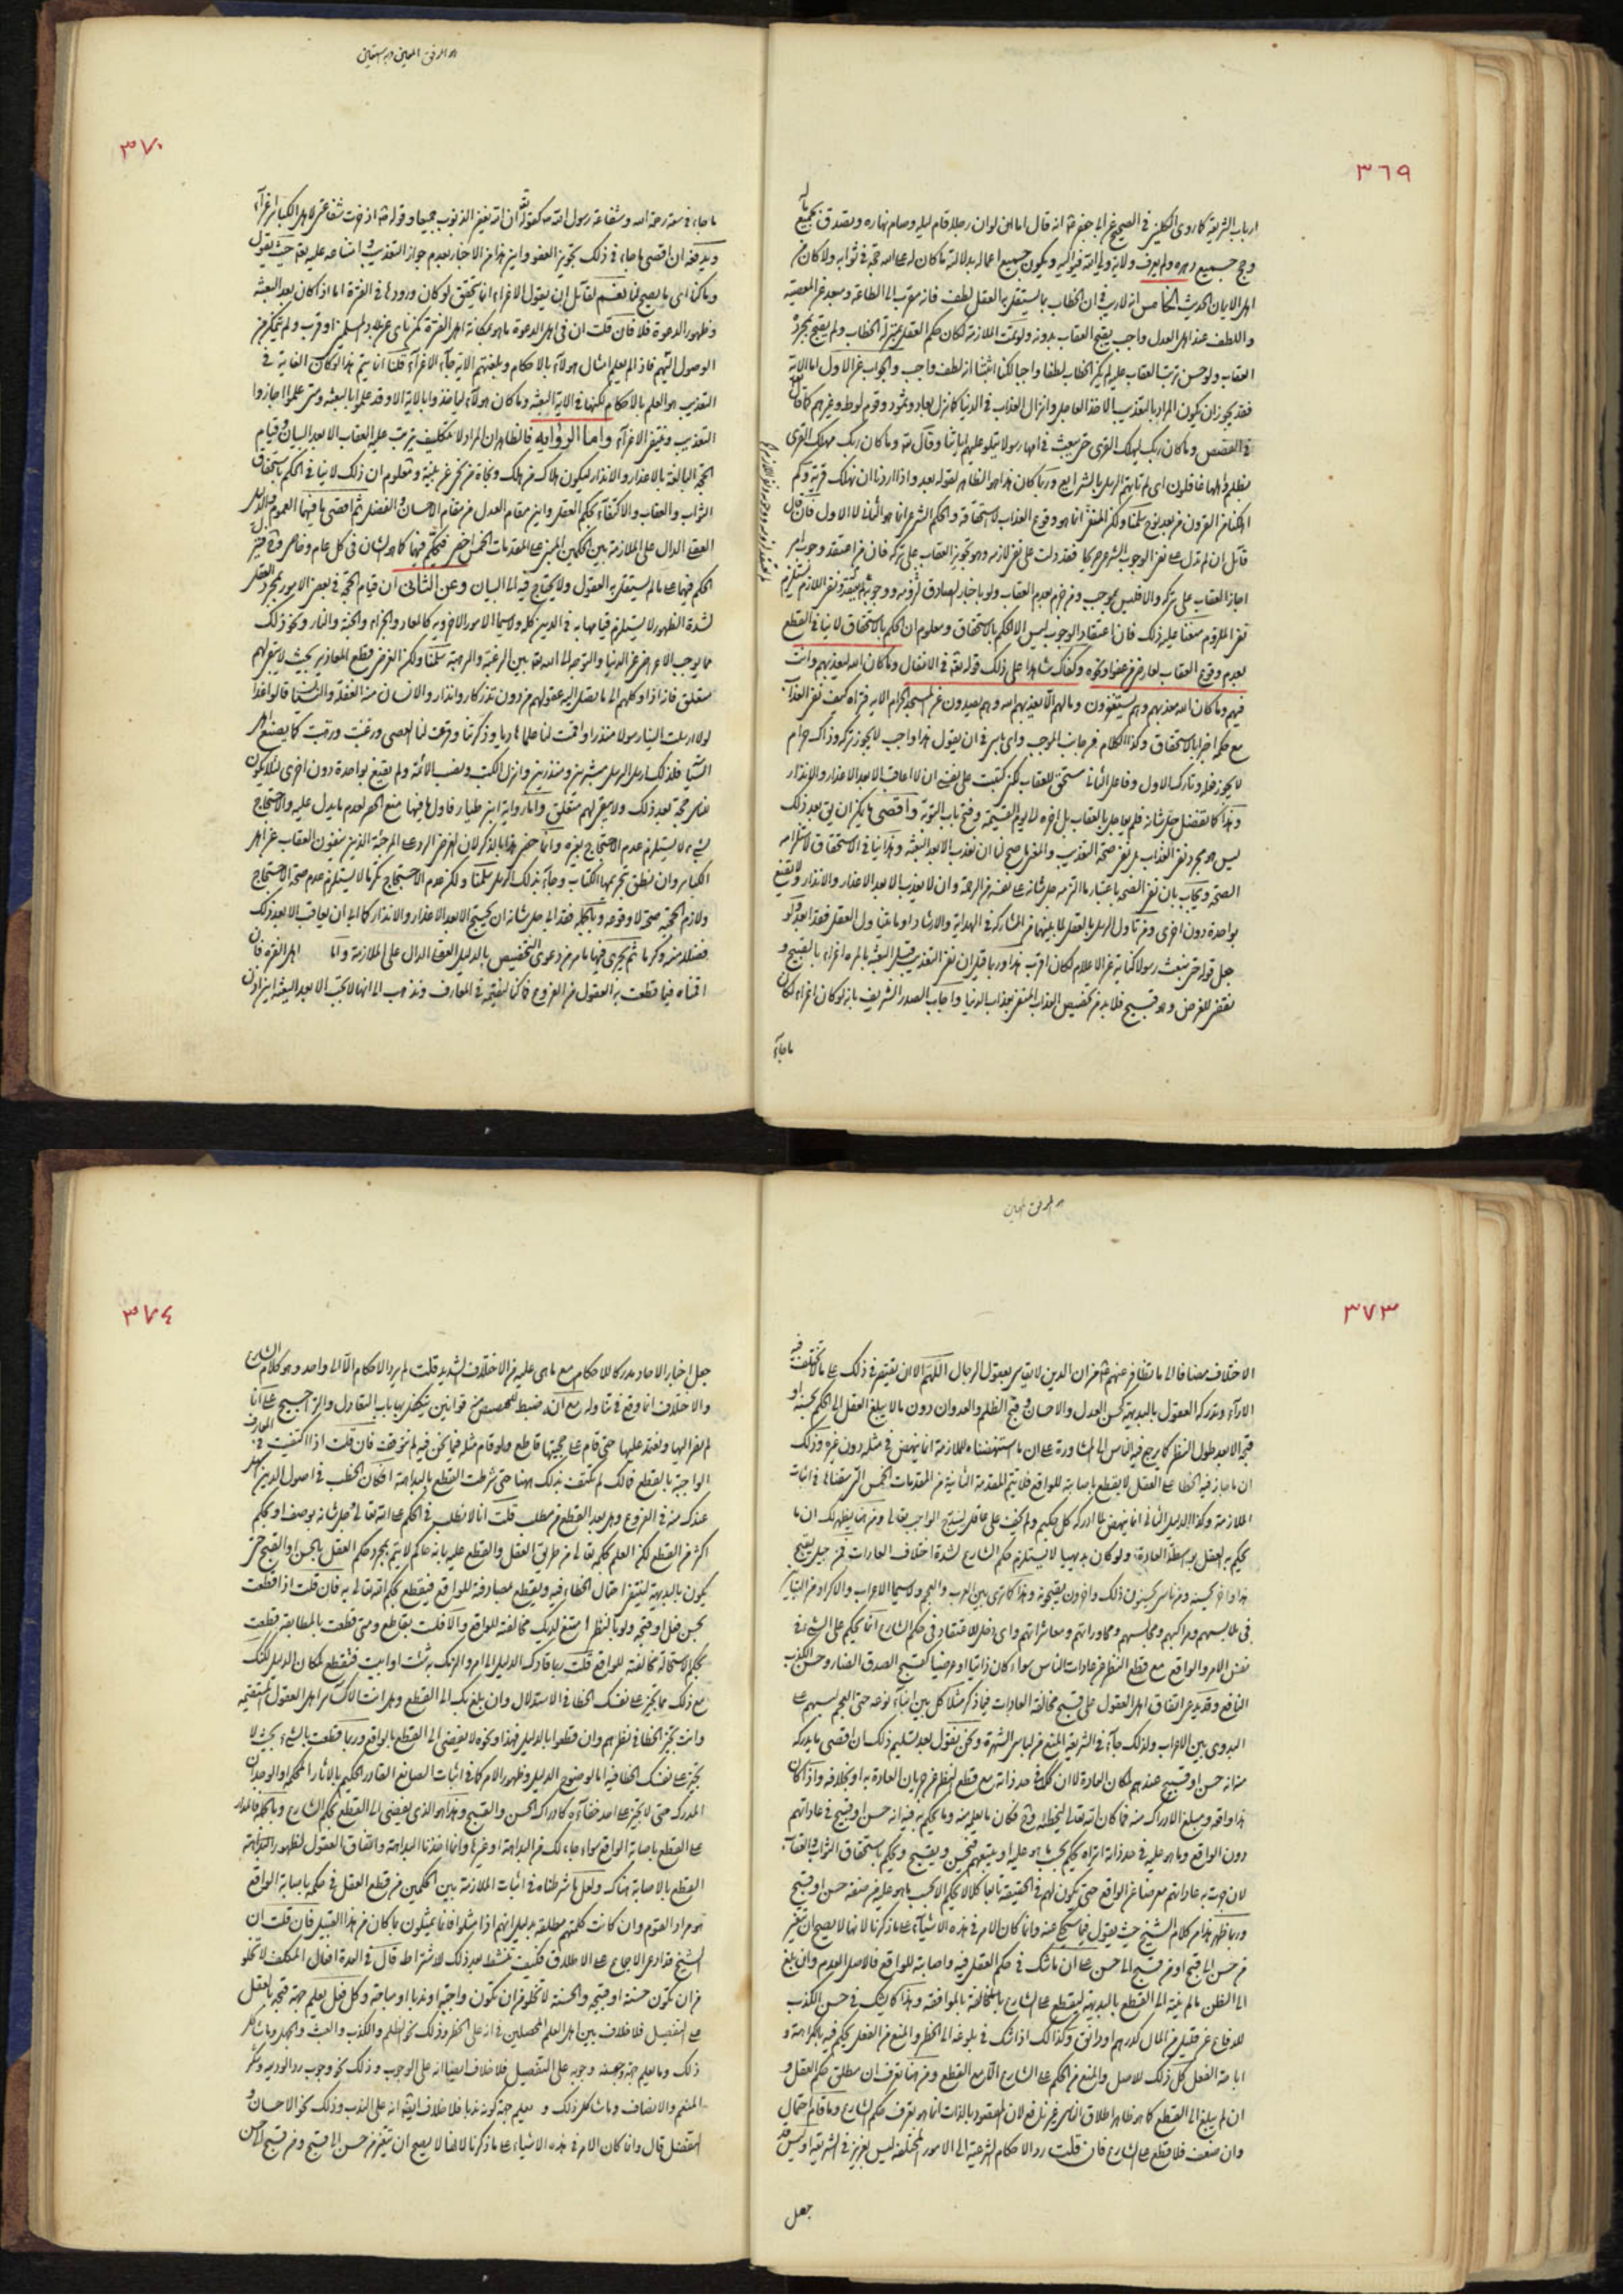 ٣٦٩
ارباب الشريعة كما روى الكليني في الصحيح عن ابي جعفر انه قال اما لو ان رجلا قام ليله وصام نهاره وتصدق بجميع ماله
وحج جميع دهره ولم يعرف ولاية ولي الله فيواليه ويكون جميع اعماله بدلالته ما كان له على الله حق في ثوابه ولا كان من
اهل الايمان الحديث الخامس انه لا ريب في ان الخطاب بما يستقل به العقل لطف فانه مقرب الى الطاعة ومبعد عن المعصية
واللطف عند اهل العدل واجب يقبح العقاب بدونه ولو تمت الملازمة لكان حكم العقل بمنزلة الخطاب ولم يقبح بمجرده
العقاب ولو حسن ترتب العقاب عليه لم يكن الخطاب لطفا واجبا لكنا اثبتنا انه لطف واجب والجواب عن الاول اما الاية
فقد يجوز ان يكون المراد بالتعذيب الاخذ العاجل وانزال العذاب في الدنيا كما نزل بعاد وثمود وقوم لوط وغيرهم كما قال
في القصص وما كان ربك ليهلك القرى حتى يبعث في امها رسولا يتلو عليهم اياتنا وقال وما كان ربك مهلك القرى
بظلم واهلها غافلون اي لم تاتهم الرسل بالشرايع وربما كان هذا هو الظاهر لقوله بعد واذا اردنا ان نهلك قرية وكم
اهلكنا من القرون من بعد نوح سلمنا ولكن المنفي انما هو وقوع العذاب لا استحقاقه والحكم الشرعي انما هو الثاني لا الاول فان قال
قائل ان لم تدل على نفي الوجوب الشرعي صريحا فقد دلت على نفي لازمه وهو تجويز العقاب على تركه فان من اعتقد وجوب امر
اجاز العقاب على تركه والا فليس بموجب ومن جزم بعدم العقاب ولو باخبار الصادق
نفي الملزوم منعنا عليه ذلك فان اعتقاد الوجوب ليس الا الحكم بالاستحقاق ومعلوم ان الحكم بالاستحقاق لا ينافي القطع
بعدم وقوع العقاب لعارض من عفو او نحوه وكفاك شاهدا على ذلك قوله تعالى في الانفال وما كان الله ليعذبهم وانت
فيهم وما كان الله معذبهم وهم يستغفرون وما لهم الا يعذبهم الله وهم يصدون عن المسجد الحرام الاية فتراه كيف نفى العذاب
مع حكمه اخرا بالاستحقاق وكذا الكلام في جانب الموجب واي باس في ان يقول هذا واجب لا يجوز تركه وذاك حرام
لا يجوز فعله وتارك الاول وفاعل الثاني مستحق للعقاب لكن كتبت على نفسي ان لا اعاقب الا بعد الاعذار والانذار
وهذا كما تفضل جل شانه فلم يعاجل بالعقاب بل اخره الى يوم القيمة وفتح باب التوبة واقصى ما يمكن ان يق بعد ذلك
ليس هو مجرد نفي العذاب بل نفي صحة التعذيب والمعنى ما صح لنا ان نعذب الا بعد البعثة وهذا ينافي الاستحقاق لاستلزامه
الصحة ويجاب بان نفي الصحة باعتبار ما التزمه جل شانه على نفسه من الرحمة وان لا يعذب الا بعد الاعذار والانذار ولا يقنع
بواحدة دون اخرى ومن تاول الرسل بالعقل لما بينهما من المشاركة في الهداية والارشاد او ما يتناول العقل فقد ابعد ولو
جعل قوله حتى نبعث رسولا كناية عن الاعلام لكان اقرب هذا وربما قيل ان نفي التعذيب قبل البعثة بالمرة اغراء بالقبيح و
نقض للغرض وهو قبيح فلا بد من تخصيص العذاب المنفي بعذاب الدنيا واجاب الصدر الشريف بانه لو كان اغراء لكان
ما جاء
٣٧٠
ما جاء في سعة رحمة الله وشفاعة رسول الله كقوله ان الله يغفر الذنوب جميعا وقوله ادخرت شفاعتي لاهل الكبائر اغراء
ويدفعه ان اقصى ما جاء في ذلك تجويز العفو واين هذا من الاخبار بعدم جواز التعذيب وامتناعه عليه تعالى حيث يقول
وما كنا اي ما يصح لنا نعم لقائل ان يقول الاغراء انما يتحقق لو كان ورودها في الفترة اما اذا كان بعد البعثة
وظهور الدعوة فلا فان قلت ان في اهل الدعوة ما هو بمكانة اهل الفترة كمن نأى عن بلاد المسلمين او قرب ولم يتمكن من
الوصول اليهم فاذا لم يعلم امثال هؤلاء بالاحكام وبلغتهم الاية جاء الاغراء قلنا انما يتم هذا لو كان الغاية في
التعذيب هو العلم بالاحكام لكنها في الاية البعثة وما كان هؤلاء لياخذوا بالاية الا وقد علموا بالبعثة ومتى علموا اجازوا
التعذيب وينتفي الاغراء واما الرواية فالظاهر ان المراد لا تكليف يترتب عليه العقاب الا بعد البيان وقيام
الحجة البالغة بالاعذار والانذار ليكون هلاك من هلك ونجاة من نجى عن بينة ومعلوم ان ذلك لا ينافي الحكم باستحقاق
الثواب والعقاب والاكتفاء بحكم العقل واين مقام العدل من مقام الاحسان والفضل ثم اقصى ما فيها العموم والدليل
العقلي الدال على الملازمة بين الحكمين المبني على المقدمات الخمس اخص فيحكم فيها كما هو الشان في كل عام وخاص
الحكم فيها على ما لم يستقل به العقول ولا يحتاج فيه الى البيان وعن الثاني ان قيام الحجة في بعض الامور بمجرد العقل
لشدة الظهور لا يستلزم قيامها به في الدين كله ولا سيما الامور الاخروية كالمعاد والجزاء والجنة والنار ونحو ذلك
مما يوجب الاعراض عن الدنيا والتوجه الى الله تعالى بين الرغبة والرهبة سلمنا ولكن الغرض قطع المعاذير بحيث لا يبقى لهم
متعلق فانه اذا وكلهم الى ما يصل اليه عقولهم من دون تذكار وانذار والانسان منه الغفلة والنسيان قالوا غدا
لولا ارسلت الينا رسولا منذرا واقمت لنا علما هاديا وذكرتنا وقرعت لنا العصى ورغبت ورهبت كما يصنع اهل
فلذلك ارسل الرسل مبشرين ومنذرين وانزل الكتب ونصب الائمة ولم يقنع بواحدة دون اخرى لئلا يكون
للناس حجة بعد ذلك ولا يبقى لهم متعلق واما رواية ابن طيار فاول ما فيها منع الحصر لعدم ما يدل عليه والاحتجاج
بشيء لا يستلزم عدم الاحتجاج بغيره وانما خص هذا بالذكر لان الغرض الرد على المرجئة الذين ينفون العقاب عن اهل
الكبائر وان نطق بتحريمها الكتاب وجاء بذلك الرسل سلمنا ولكن عدم الاحتجاج تكرما لا يستلزم عدم صحة الاحتجاج
ولازم الحجية صحته لا وقوعه وبالجملة فقد الى جل شانه ان يحتج الا بعد الاعذار والانذار كما الى ان يعاقب الا بعد ذلك
فضلا منه وكرما ثم يجري فيها ما مر من دعوى التخصيص بالدليل العقلي الدال على الملازمة واما اهل الفترة فان
اقمناه فيما قطعت به العقول من الفروع فما كنا لنقيمه في المعارف ونذهب الى انها لا تجب الا بعد البعثة
٣٧٣
الاختلاف مضافا الى ما تظافر عنهم من ان الدين لا يقاس بعقول الرجال اللهم الا ان يقتصر في ذلك على ما لا تختلف فيه
الاراء وتدركه العقول بالبديهة كحسن العدل والاحسان وقبح الظلم والعدوان دون ما لا يبلغ العقل الى الحكم بحسنه او
قبحه الا بعد طول النظر كما يرجع فيه الناس الى المشاورة على ان ما استنهضناه للملازمة انما ينهض في مثله دون غيره وذلك
ان ما جاز فيه الخطا على العقل لا يقطع باصابته للواقع فلا يتم المقدمة الثانية من المقدمات الخمس التي سقناها في اثبات
الملازمة وكذا الدليل الثاني انما ينهض بما ادركه كل حكيم ولم يخف على عاقل ليستتبع الواجب تعالى ومن هنا يظهر لك ان ما
يحكم به العقل بواسطة العادة ولو كان بديهيا لا يستلزم حكم الشارع لشدة اختلاف العادات فمن جيل يقبح
هذا واخر يحسنه ومن ناس يحسنون ذلك واخرون يقبحونه وهذا كما ترى بين العرب والعجم ولا سيما الاعراب والاكراد من التباين
في ملابسهم ومراكبهم ومجالسهم ومحاوراتهم ومعاشراتهم واي دخل للاعتقاد في حكم الشارع انما يحكم على الشيء في
نفس الامر والواقع مع قطع النظر عن عادات الناس سواء كان ذاتيا او عرضيا كقبح الصدق الضار وحسن الكذب
النافع وقد يدعى اتفاق اهل العقول على قبح مخالفة العادات فيما ذكر مثلا كل بين ابناء نوعه حتى العجم لبسهم على
البدوي بين الاعراب ولذلك جاء في الشريعة المنع من لباس الشهرة ونحن نقول بعد تسليم ذلك ان اقصى ما يدركه
منه انه حسن او قبيح عندهم لمكان العادة لا انه كذلك في حد ذاته مع قطع النظر عن جريان العادة به او بخلافه واذا كان
هذا واقعه ومبلغ الادراك منه فما كان الله تعالى ليخطئه وح فكان ما يعلم منه وما يحكم به فيه انه حسن او قبيح في عاداتهم
دون الواقع وما هو عليه في حد ذاته اتراه يحكم بحسب ما هو عليه او يتبعهم فيحسن ويقبح ويحكم باستحقاق الثواب والعقاب
لان جرت به عاداتهم معرضا عن الواقع حتى يكون لهم في الحقيقة تابعا كلا لا يحكم الا بحسب ما هو عليه من صفة حسن او قبح
وربما ظهر هذا من كلام الشيخ حيث يقول فيما سيحكى عنه وانما كان الامر في هذه الاشياء على ما ذكرنا لانها لا يصح ان يتغير
من حسن الى قبح او من قبح الى حسن على ان ما شك في حكم العقل فيه واصابته للواقع فالاصل العدم وان بلغ
الى الظن ما لم ينته الى القطع بالبديهة ليقطع على الشارع بالمخالفة بالموافقة وهذا كما يشك في حسن الكذب
للدفاع عن قليل من المال كدرهم او دانق وكذالك اذا شك في بلوغه الى الحظر والمنع من الفعل يحكم فيه بالكراهة و
اباحة الفعل كل ذلك للاصل والمنع من الحكم على الشارع الا مع القطع ومن هنا تعرف ان مطلق حكم العقل و
ان لم يبلغ الى القطع كما هو ظاهر اطلاق الناس غير نافع لان المقصود بالذات انما هو تعرف حكم الشارع وما قام احتمال
وان ضعف فلا قطع على الشارع فان قلت رد الاحكام الشرعية الى الامور المختلفة ليس بعزيز في الشريعة اوليس قد
جعل
٣٧٤
جعل اخبار الاحاد مدركا للاحكام مع ما هي عليه من الاختلاف الشديد قلت لم يرد الاحكام الا الى واحد وهو كلام الشارع
والاختلاف انما وقع في تناوله مع انه قد ضبط للمخصص من قوانين يتكفل بها باب التعادل والتراجيح على انا
لم نفزع اليها ونعتمد عليها حتى قام على حجيتها قاطع ولو قام مثله فيما نحن فيه لم نتوقف فان قلت اذا اكتفيت في المعارف
الواجبة بالقطع فما لك لم تكتف بذلك ههنا حتى شرطت القطع بالبداهة افكان الخطب في اصول الدين اسهل
عندك منه في الفروع وهل بعد القطع من مطلب قلت انا لا نطلب في الحكم على الله تعالى وجل شانه بوصف او بحكم
اكثر من القطع لكن العلم بحكمه تعالى من طريق العقل والقطع عليه بانه حاكم لا يتم بمجرد حكم العقل بالحسن او القبح حتى
يكون بالبديهة لينتفي احتمال الخطاء فيه ويقطع بمصادفته للواقع فيقطع بحكم الله تعالى به فان قلت اذا قطعت
بحسن فعل او قبحه ولو بالنظر امتنع لديك مخالفته للواقع والا فلست بقاطع ومتى قطعت بالمطابقة قطعت
بحكمه لاستحالة مخالفته للواقع قلت ربما قادك الدليل الى امر والزمك به شئت او ابيت فتقطع لمكان الدليل لكنك
مع ذلك مما تجوز على نفسك الخطا في الاستدلال وان بلغ بك الى القطع وهل انت الا كسائر اهل العقول المستقيمة
وانت تجوز الخطا في نظرهم وان قطعوا بالدليل فهذا ونحوه لا يفضي الى القطع بالواقع وربما قطعت بالشيء بحيث لا
تجوز على نفسك الخطا فيه اما لوضوح الدليل وظهور الامر كما في اثبات الصانع القادر الحكيم بالاثار المحكمة او الوجدان
المدرك حتى لا يجوز على احد خفاءه كادراك الحسن والقبح وهذا هو الذي يفضي الى القطع بحكم الشارع وبالجملة فالمدار
على القطع باصابة الواقع سواء جاء لك من البداهة او غيرها وانما اخذنا البداهة واتفاق العقول لظهور البداهة
القطع بالاصابة هناك ولعل ما شرطناه في اثبات الملازمة بين الحكمين من قطع العقل في حكمه باصابة الواقع
هو مراد القوم وان كانت كلمتهم مطلقة بدليل انهم اذا مثلوا فانما يمثلون ما كان من هذا القبيل فان قلت ان
الشيخ قد ادعى الاجماع على الاطلاق فكيف تنشط بعد ذلك للاشتراط قال في العدة افعال المكلف لا تخلو
من ان تكون حسنة او قبيحة والحسنة لا تخلو من ان تكون واجبة او ندبا او مباحة وكل فعل يعلم جهة قبحه بالعقل
على التفصيل فلا خلاف بين اهل العلم المحصلين في انه على الحظر وذلك نحو الظلم والكذب والعبث والجهل وما شاكل
ذلك وما يعلم جهة حسنه وجوبه على التفصيل فلا خلاف ايضا انه على الوجوب وذلك نحو وجوب رد الوديعة وشكر
المنعم والانصاف وما شاكل ذلك و يعلم جهة كونه ندبا فلا خلاف ايضا انه على الندب وذلك نحو الاحسان و
التفضل قال وانما كان الامر في هذه الاشياء على ما ذكرنا لانها لا يصح ان يتغير من حسن الى قبح ومن قبح الى حسن